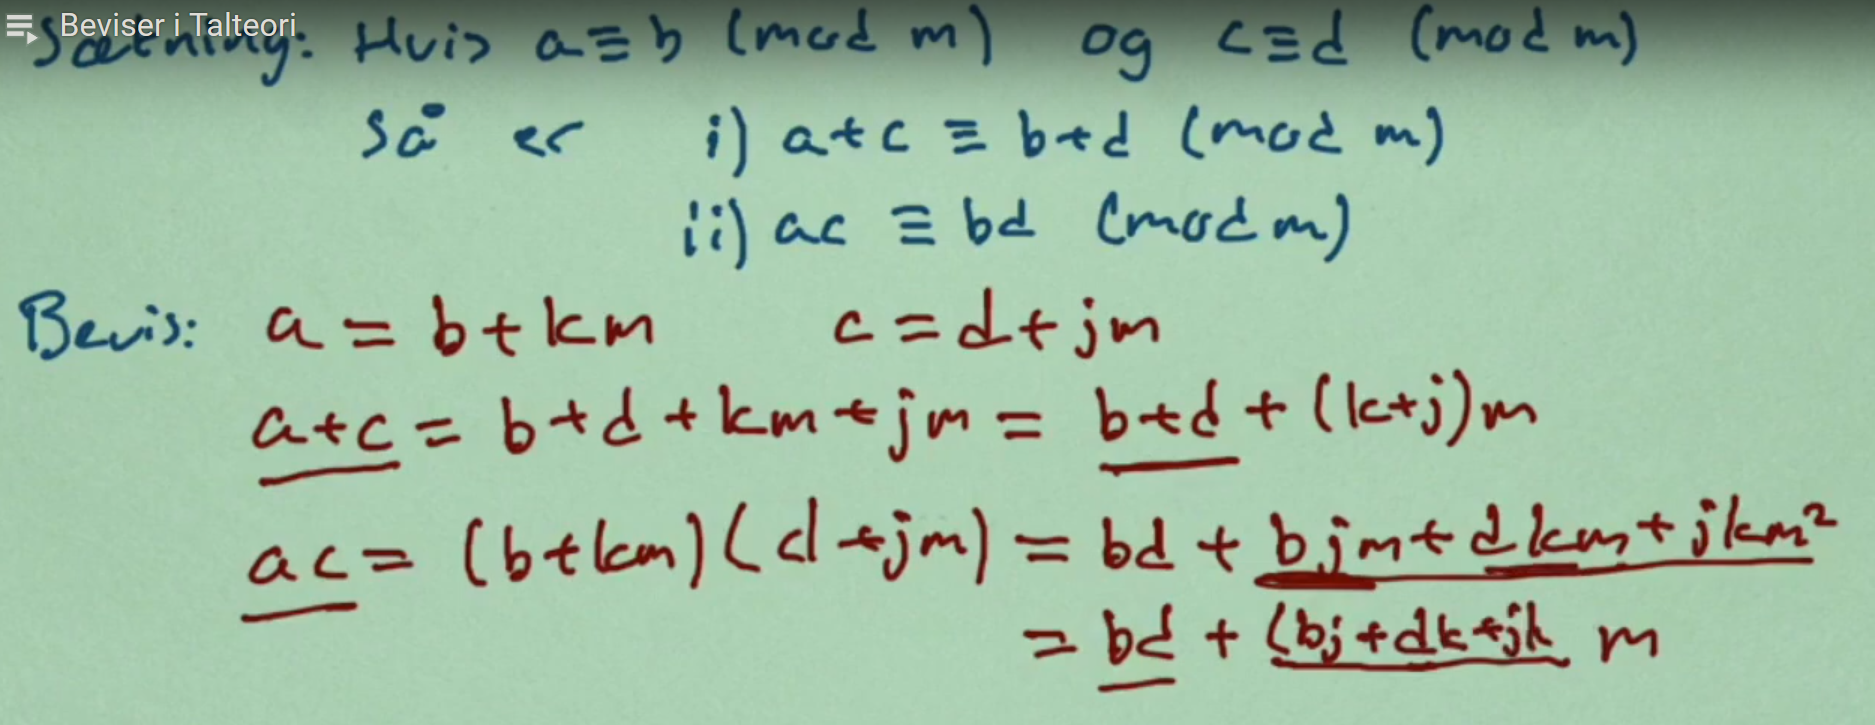 Beviser i Talteori
Sætning: Hvis a ≡ b (mod m) og c ≡ d (mod m)
Så er i) a + c ≡ b + d (mod m)
ii) ac ≡ bd (mod m)
Bevis: a = b + km c = d + jm
a + c = b + d + km + jm = b + d + (k + j)m
ac = (b + km)(d + jm) = bd + bjm + dkm + jkm²
= bd + (bj + dk + jk m